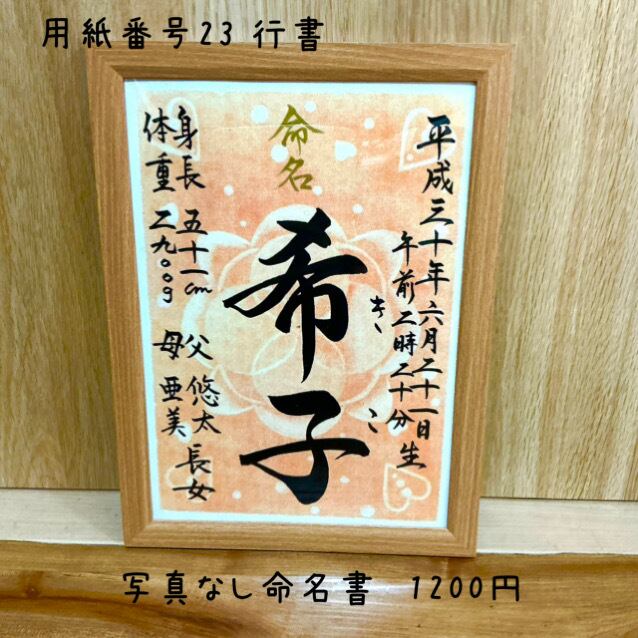 用紙番号23 行書
平成三十年六月二十一日
午前二時二十分生
命名
希子
きこ
身長 五十一cm
体重 二九〇〇g
父 悠太 長女
母 亜美
写真なし命名書 1200円